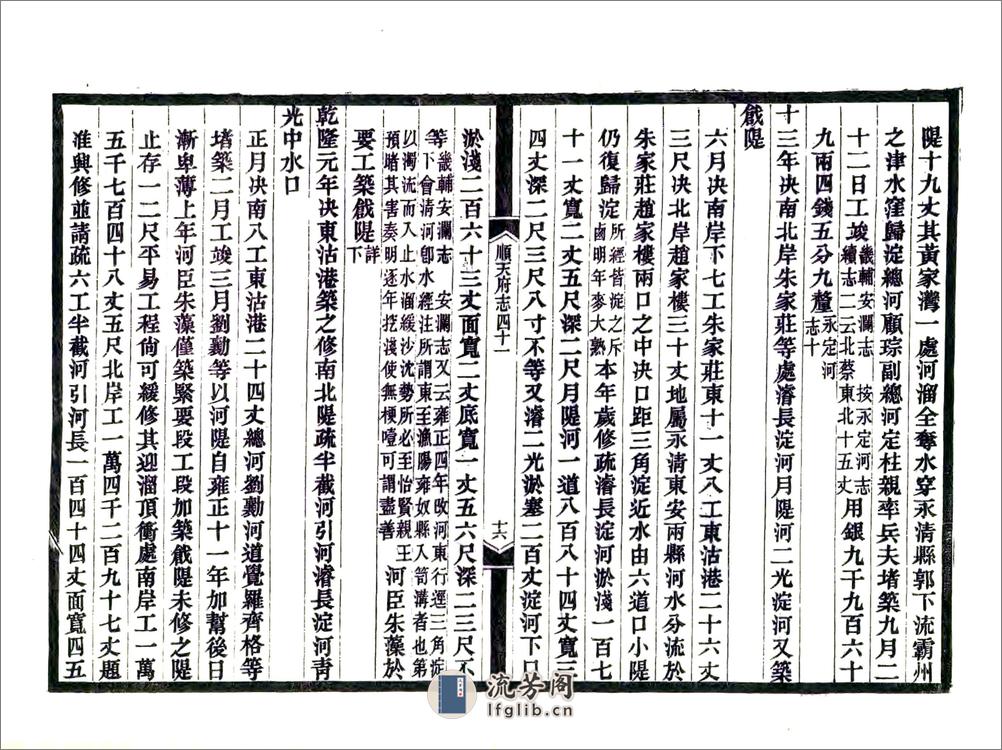 隄十九丈其黃家灣一處河溜全奪水穿永清縣郭下流霸州
之津水窪歸淀總河顧琮副總河定柱親率兵夫堵築九月二
十二日工竣畿輔安瀾志　按永定河志
續志二二云北蔡東北十五丈用銀九千九百六十
九兩四錢五分九釐永定河
志十
十三年决南北岸朱家莊等處濬長淀河月隄河二光淀河又築
戧隄
六月决南岸下七工朱家莊東十一丈八工東沽港二十六丈
三尺决北岸趙家樓三十丈地屬永清東安兩縣河水分流於
朱家莊趙家樓兩口之中决口距三角淀近水由六道口小隄
仍復歸淀所經皆淀之斥
鹵明年麥大熟本年歲修疏濬長淀河淤淺一百七
十一丈寬二丈五尺深二尺月隄河一道八百八十四丈寬三
四丈深二尺三尺八寸不等又濬二光淤塞二百丈淀河下口
順天府志四十一
十六
淤淺二百六十三丈面寬二丈底寬一丈五六尺深二三尺不
等畿輔安瀾志　安瀾志又云雍正四年改河東行逕三角淀
下會清河卽水經注所謂東至漁陽雍奴縣入笥溝者也第
以濁流而入止水溜緩沙沈勢所必至怡賢親王
預睹其害奏明逐年挖淺使無梗噎可謂盡善河臣朱藻於
要工築戧隄詳
下
乾隆元年决東沽港築之修南北隄疏半截河引河濬長淀河青
光中水口
正月决南八工東沽港二十四丈總河劉勷河道覺羅齊格等
堵築二月工竣三月劉勷等以河隄自雍正十一年加幫後日
漸卑薄上年河臣朱藻僅築緊要段工段加築戧隄未修之隄
止存一二尺平易工程尙可緩修其迎溜頂衝處南岸工一萬
五千七百四十八丈五尺北岸工一萬四千二百九十七丈題
准興修並請疏六工半截河引河長一百四十四丈面寬四五
流芳阁
lfglib.cn